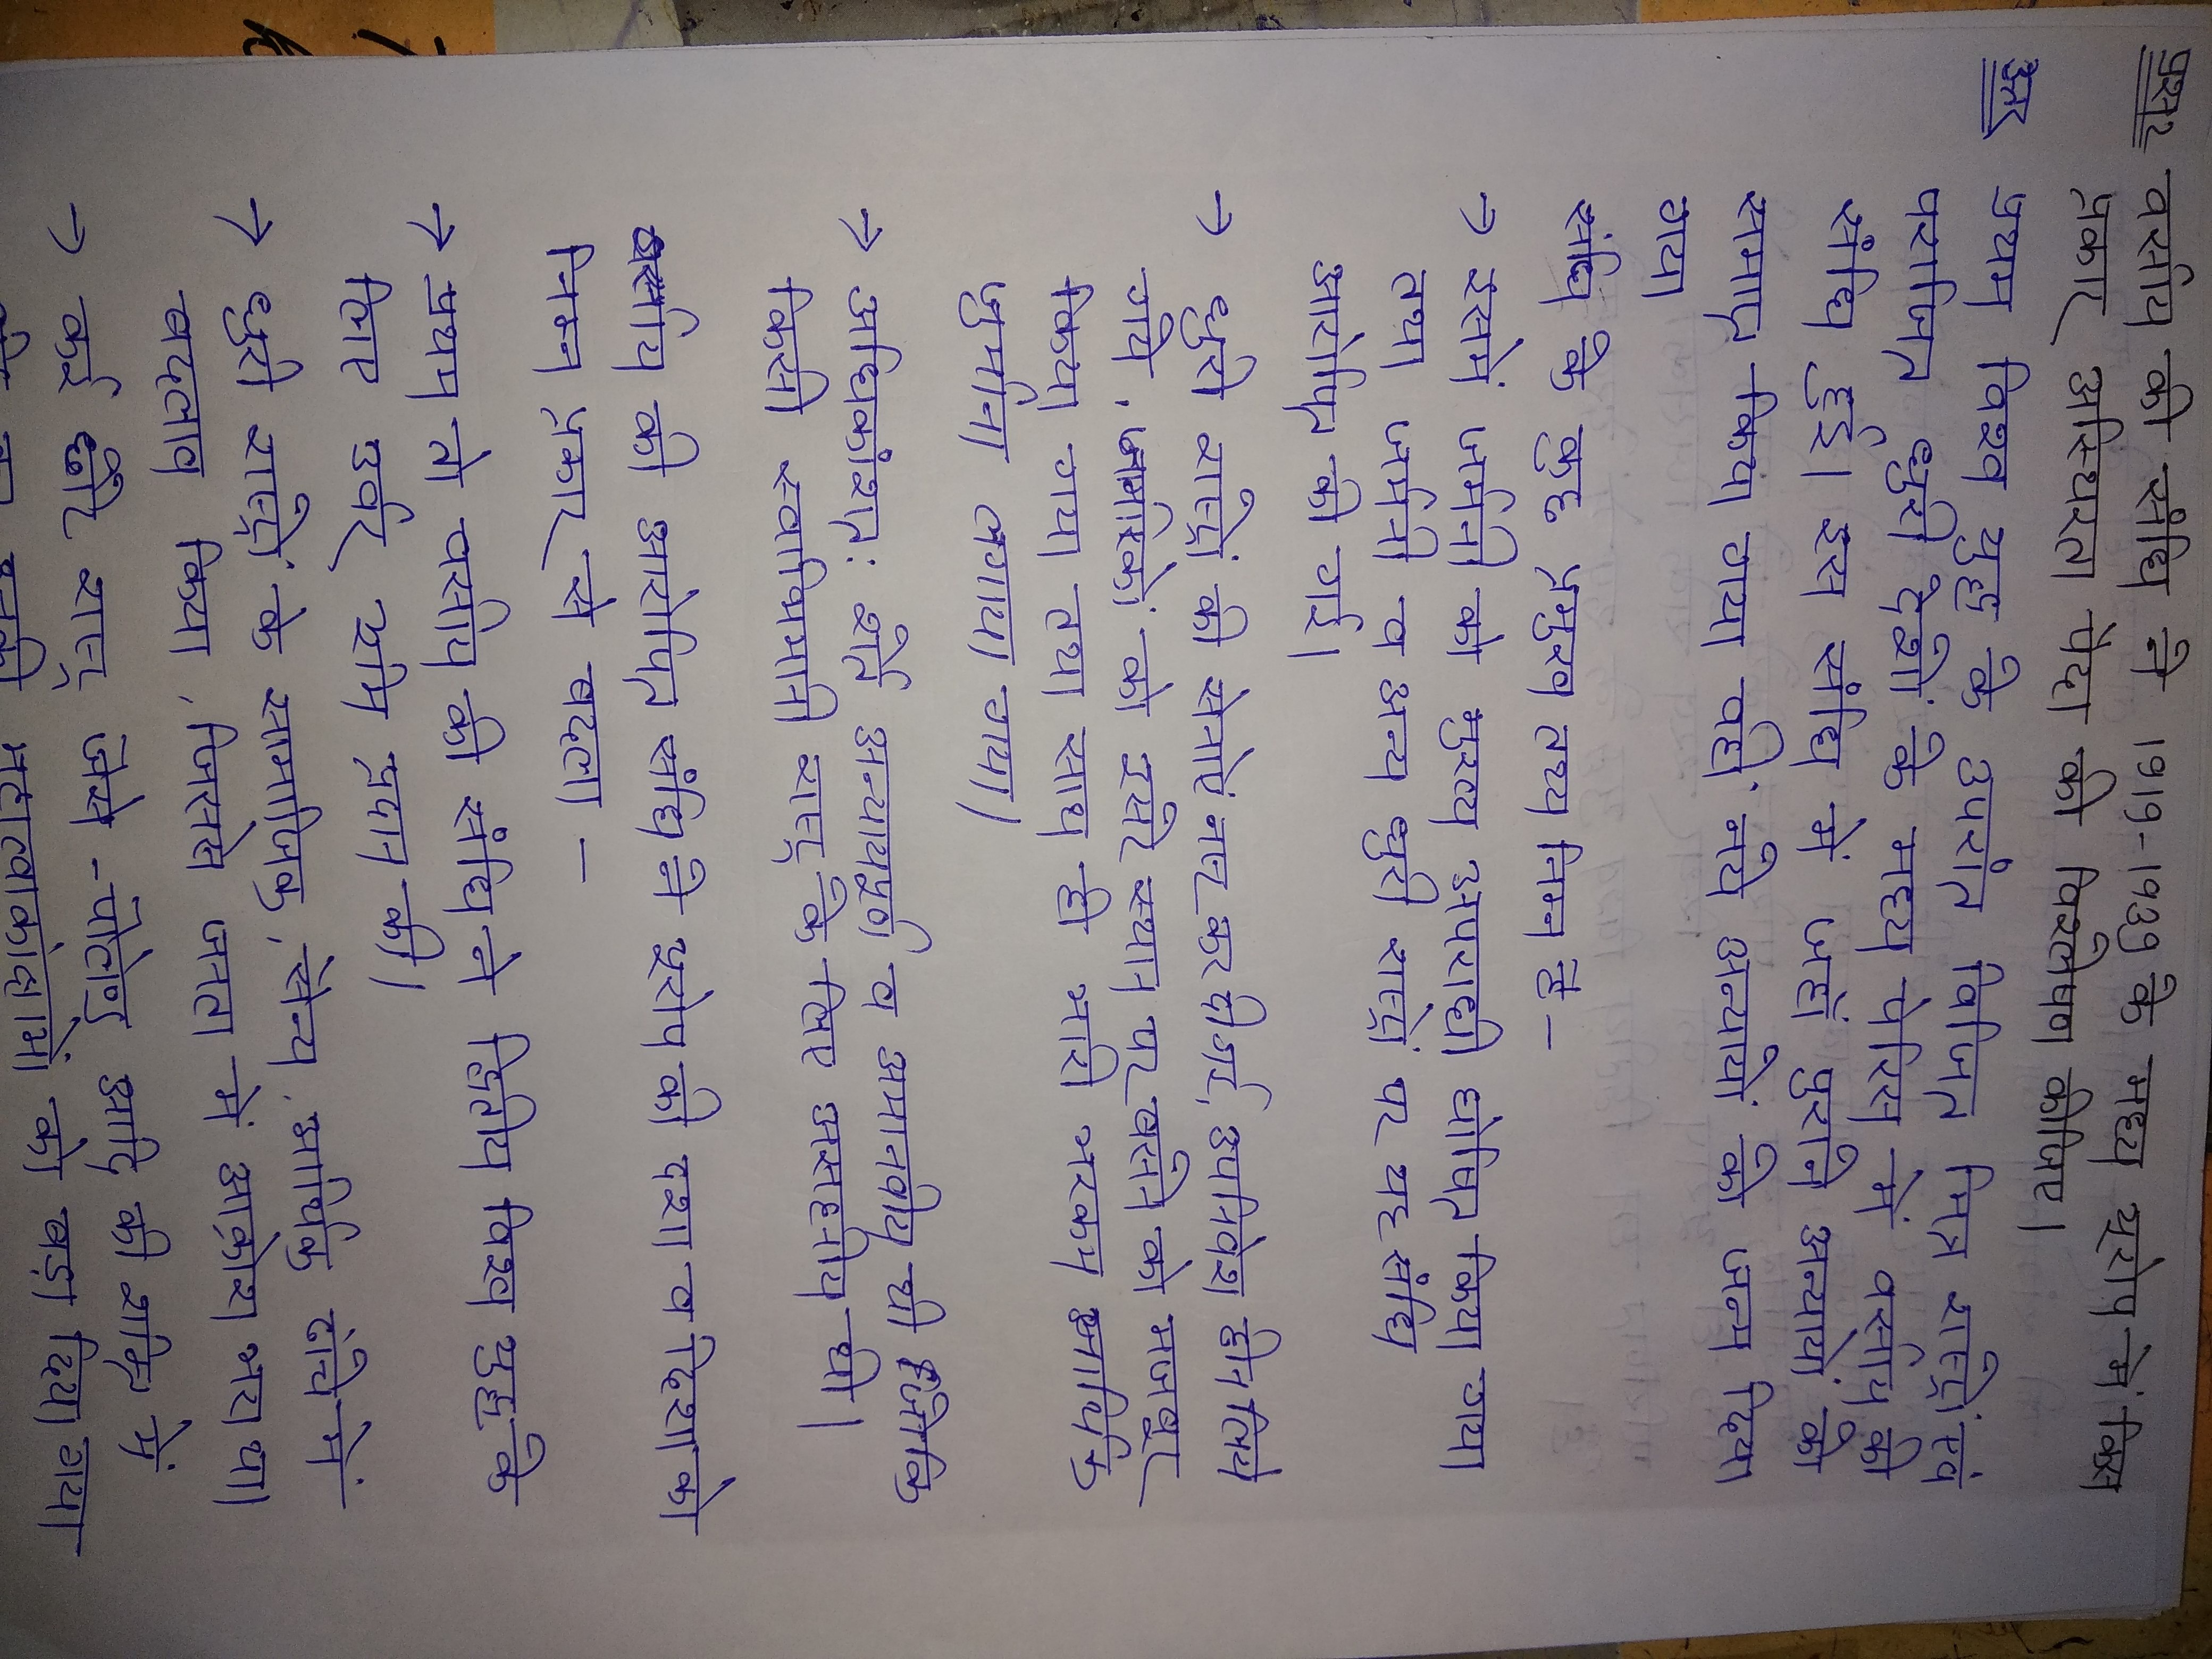 प्रश्न2 वर्साय की संधि ने 1919-1939 के मध्य यूरोप में किस
प्रकार अस्थिरता पैदा की विश्लेषण कीजिए।
उत्तर प्रथम विश्व युद्ध के उपरांत विजित मित्र राष्ट्रों एवं
पराजित धुरी देशों के मध्य पेरिस में वर्साय की
संधि हुई। इस संधि में जहाँ पुराने अन्यायों को
समाप्त किया गया वहीं नये अन्यायों को जन्म दिया
गया
संधि के कुछ प्रमुख तथ्य निम्न हैं -
→ इसमें जर्मनी को मुख्य अपराधी घोषित किया गया
तथा जर्मनी व अन्य धुरी राष्ट्रों पर यह संधि
आरोपित की गई।
→ धुरी राष्ट्रों की सेनाएं नष्ट कर दी गई, उपनिवेश छीन लिये
गये, नागरिकों को दूसरे स्थान पर बसने को मजबूर
किया गया तथा साथ ही भारी भरकम आर्थिक
जुर्माना लगाया गया।
→ अधिकांशतः शर्ते अन्यायपूर्ण व अमानवीय थी जोकि
किसी स्वाभिमानी राष्ट्र के लिए असहनीय थी।
वर्साय की आरोपित संधि ने यूरोप की दशा व दिशा को
निम्न प्रकार से बदला -
→ प्रथम तो वर्साय की संधि ने द्वितीय विश्व युद्ध के
लिए उर्वर भूमि प्रदान की।
→ धुरी राष्ट्रों के सामाजिक, सैन्य, आर्थिक ढांचे में
बदलाव किया, जिससे जनता में आक्रोश भरा था।
→ कई छोटे राष्ट्र जैसे - पोलैण्ड आदि की शक्ति में
महत्वाकांक्षाओं को बड़ा दिया गया